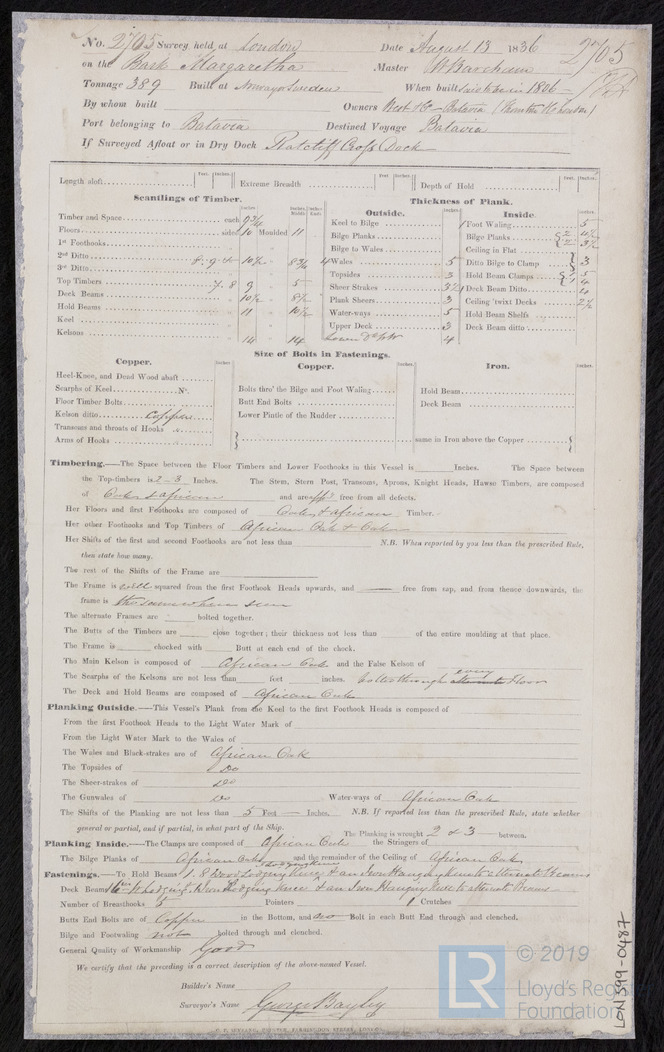 No. 2705 Survey held at London Date August 13 1836 2705
on the Bark Margaretha Master W Barcham
Tonnage 389 Built at Sweden When built 1806
By whom built Owners Batavia
Port belonging to Batavia Destined Voyage Batavia
If Surveyed Afloat or in Dry Dock Ratcliff Cross Dock
Feet. Inches. Feet. Inches. Feet. Inches.
Length aloft Extreme Breadth Depth of Hold
Scantlings of Timber. Thickness of Plank.
Inches. Inches Middle Inches Ends Outside. Inches. Inside. Inches.
Timber and Space each 9 3/4 Keel to Bilge Foot Waling 5
Floors sided 10 Moulded 11 Bilge Planks Bilge Planks { 2 4 1/2 2 3 1/2
1st Foothooks Bilge to Wales Ceiling in Flat
2nd Ditto 8. 9 & 10 1/2 8 3/4 4 Wales 5 Ditto Bilge to Clamp 3
3rd Ditto Topsides 3 Hold Beam Clamps 5 4
Top Timbers 7. 8 9 5 Sheer Strakes 3 1/2 Deck Beam Ditto 4
Deck Beams 10 1/2 8 1/2 Plank Sheers 3 Ceiling 'twixt Decks 2 1/2
Hold Beams 11 10 1/2 Water-ways 5 Hold Beam Shelfs
Keel Upper Deck 3 Deck Beam ditto
Kelsons 14 14 Lower 4
Size of Bolts in Fastenings.
Copper. Copper. Iron.
Heel-Knee, and Dead Wood abaft
Scarphs of Keel No. Bolts thro' the Bilge and Foot Waling Hold Beam
Floor Timber Bolts Butt End Bolts Deck Beam
Kelson ditto Copper Lower Pintle of the Rudder
Transoms and throats of Hooks
Arms of Hooks { same in Iron above the Copper {
Timbering.—The Space between the Floor Timbers and Lower Foothooks in this Vessel is Inches. The Space between
the Top-timbers is 2-3 Inches. The Stem, Stern Post, Transoms, Aprons, Knight Heads, Hawse Timbers, are composed
of Oak & African and are appr free from all defects.
Her Floors and first Foothooks are composed of Oak & African Timber.
Her other Foothooks and Top Timbers of African Oak & Oak
Her Shifts of the first and second Foothooks are not less than N.B. When reported by you less than the prescribed Rule,
then state how many.
The rest of the Shifts of the Frame are
The Frame is well squared from the first Foothook Heads upwards, and free from sap, and from thence downwards, the
frame is the same where seen
The alternate Frames are bolted together.
The Butts of the Timbers are close together; their thickness not less than of the entire moulding at that place.
The Frame is chocked with Butt at each end of the chock.
The Main Kelson is composed of African Oak and the False Kelson of
The Scarphs of the Kelsons are not less than feet inches. bolted through alternate every Floor
The Deck and Hold Beams are composed of African Oak
Planking Outside.—This Vessel's Plank from the Keel to the first Foothook Heads is composed of
From the first Foothook Heads to the Light Water Mark of
From the Light Water Mark to the Wales of
The Wales and Black-strakes are of African Oak
The Topsides of Do
The Sheer-strakes of Do
The Gunwales of Do Water-ways of African Oak
The Shifts of the Planking are not less than 5 Feet — Inches. N.B. If reported less than the prescribed Rule, state whether
general or partial, and if partial, in what part of the Ship. The Planking is wrought 2 & 3 between.
Planking Inside.—The Clamps are composed of African Oak the Stringers of
The Bilge Planks of African Oak and the remainder of the Ceiling of African Oak
Fastenings.—To Hold Beams 1. 8 Wood Lodging Knee & an Iron Hanging Knee to alternate Beams
Deck Beams Lodging Knee & an Iron Hanging Knee to alternate Beams
Number of Breasthooks 5 Pointers Crutches 1
Butts End Bolts are of Copper in the Bottom, and one Bolt in each Butt End through and clenched.
Bilge and Footwaling not bolted through and clenched.
General Quality of Workmanship Good
We certify that the preceding is a correct description of the above-named Vessel.
Builder's Name
Surveyor's Name George Bayley
LON 399-0487
LR © 2019
Lloyd's Register
Foundation